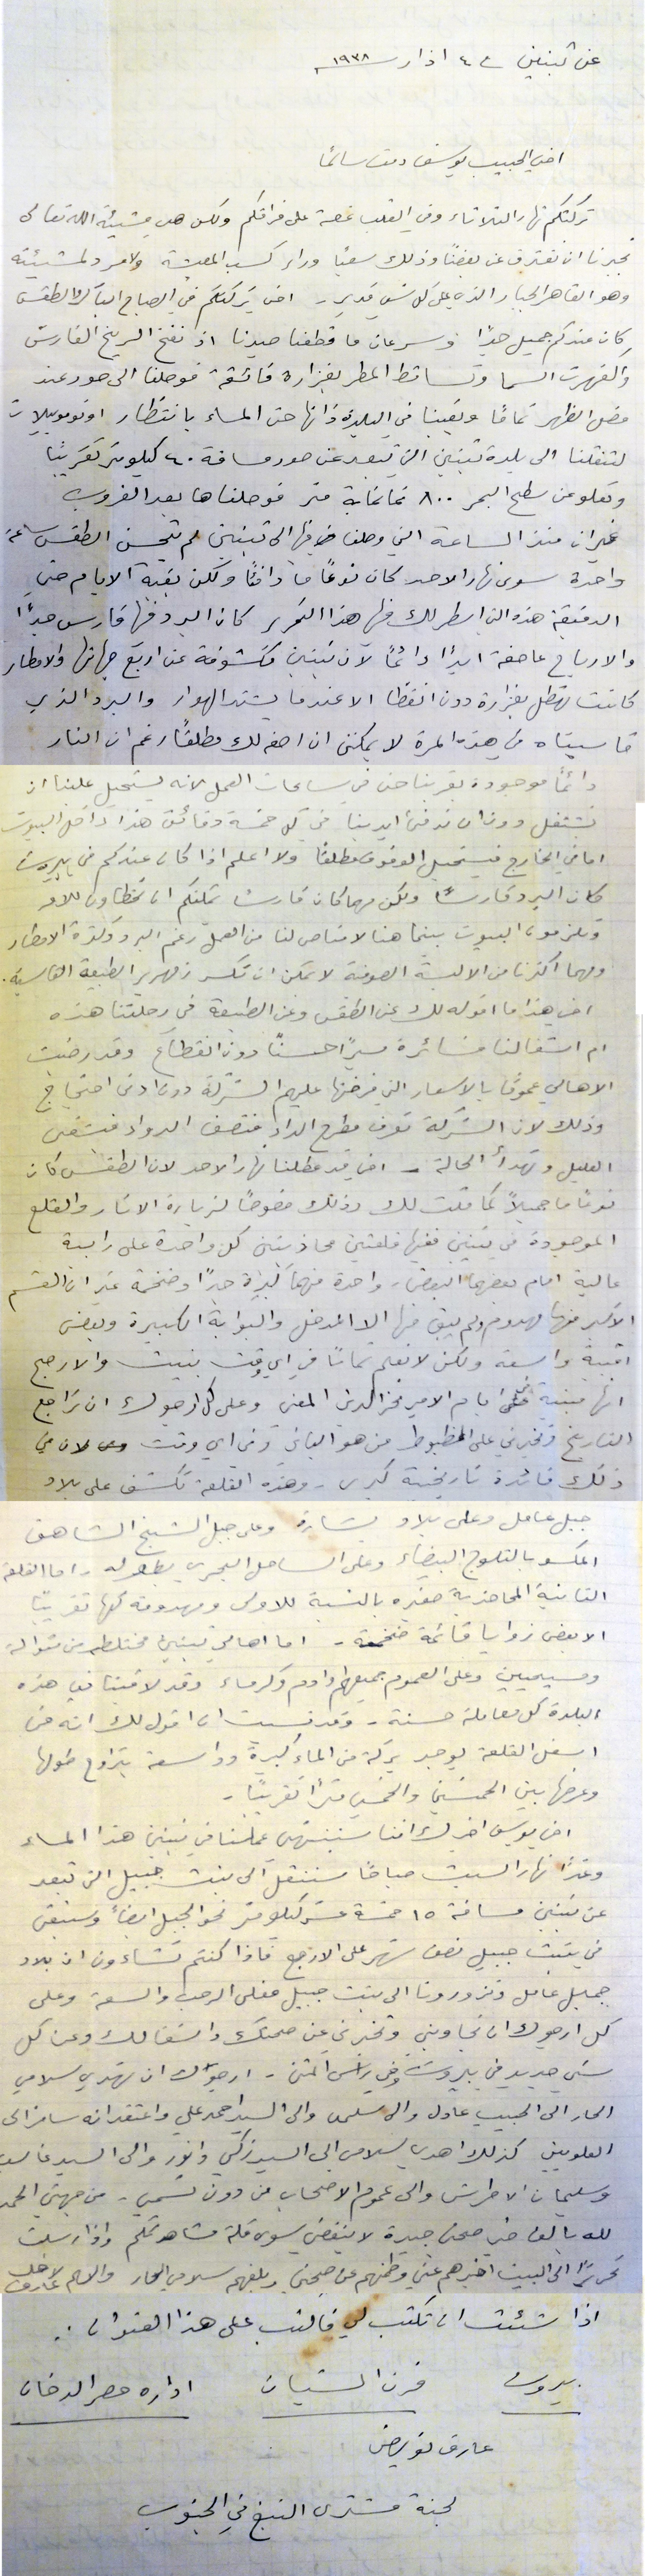 عن تبنين في ٤ اذار سنة ١٩٣٨
اخي الحبيب يوسف دمت سالمًا
تركتكم نهار الثلاثاء وفي القلب غصة على فراقكم ولكن هي مشيئة الله تعالى
تجبرنا ان نفترق عن بعضنا وذلك سعيًا وراء كسب المعيشة ولا مرد لمشيئته
وهو القاهر الجبار الذي على كل شي قدير - اخي تركتكم في الصباح الباكر والطقس
كان عندكم جميل جدًا وسرعان ما قطفنا صيدنا اذ نفخ الريح القارس
واكفهرت السما وتساقط المطر بغزارة فائقة فوصلنا الى صور عند
الظهر تمامًا وبقينا في البلدة ذاتها حتى المساء بانتظار اوتوموبيلات
لتنقلنا الى بلدة تبنين التي تبعد عن صور مسافة ٤٠ كيلومتر تقريبًا
وتعلو عن سطح البحر ٨٠٠ ثمانماية متر فوصلناها بعد الغروب
غير ان منذ الساعة التي وصلنا فيها الى تبنين لم يتحسن الطقس ساعة
واحدة سوى نهار الاحد كان نوعًا ما دافئًا ولكن بقية الايام حتى
الدقيقة هذه التي اسطر لك فيها هذا التحرير كان البرد فيها قارس جدًا
والارياح عاصفة ابدًا دائمًا لان تبنين مكشوفة عن اربع جهاتها والامطار
كانت تهطل بغزارة دون انقطاع الا عندما يشتد الهواء والبرد الذي
قاسيناه في هذه المرة لا يمكنني ان اصفه لك مطلقًا رغم ان النار
دائمًا موجودة بقربنا حتى في ساعات العمل لانه يستحيل علينا ان
نشتغل دون ان ندفئ ايدينا في كل خمسة دقائق هذا داخل البيوت
اما في الخارج فيستحيل الوقوف مطلقًا ولا اعلم اذا كان عندكم في بيروت
كان البرد قارسًا ولكن مهما كان قارسًا يمكنكم ان
وتلزموا البيوت بينما هنا لا مناص لنا من العمل رغم البرد وكثرة الامطار
ومهما اكثرنا من الالبسة الصوفية لا يمكن ان تكسر زمهرير الطبيعة القاسية.
اخي هذا ما اقوله لك عن الطقس وعن الطبيعة في رحلتنا هذه
اما اشغالنا فسائرة سيرًا حسنًا دون انقطاع وقد رضيت
الاهالي عمومًا بالاسعار التي فرضتها عليهم الشركة دون ادنى احتجاج
وذلك لان الشركة تعرف مطرح الداء فتصف الدواء فيشفى
العليل وتهدأ الحالة - اخي قد عطلنا نهار الاحد لان الطقس كان
نوعًا ما جميلًا كما قلت لك وذلك خصوصًا لزيارة الاثار والقلع
الموجودة في تبنين ففيها قلعتين محاذيتين كل واحدة على رابية
عالية امام بعضهما البعض، واحدة منهما كبيرة جدًا وضخمة غير ان القسم
الاكبر منها مهدوم ولم يبق منها الا المدخل والبوابة الكبيرة وبعض
اقبية واسعة ولكن لا نعلم تمامًا في اي وقت بنيت والارجح
انها مبنية على ايام الامير فخر الدين المعني وعلى كل ارجوك ان تراجع
التاريخ وتخبرني على المظبوط من هو الباني وفي اي وقت لان في
ذلك فائدة تاريخية كبرى - وهذه القلعة تكشف على بلاد
جبل عامل وعلى بلاد بشارة وعلى جبل الشيخ الشاهق
المكسو بالثلوج البيضاء وعلى الساحل البحري بطوله - اما القلعة
الثانية المحاذية صغيره بالنسبة للاولى ومهدومة كلها تقريبًا
الا بعض زوايا قائمة ضخمة - اما اهالي تبنين مختلطين من متوالة
ومسيحيين وعلى العموم جميعهم اوادم وكرماء وقد لاقينا في هذه
البلدة كل معاملة حسنة - وقد نسيت ان اقول لك انه في
اسفل القلعة يوجد بركة من الماء كبيرة وواسعة يتراوح طولها
وعرضها بين الخمسين والخمس مترًا تقريبًا -
اخي يوسف اخبرك اننا سننتهي عملنا في تبنين هذا المساء
وغدًا نهار السبت صباحًا سننتقل الى بنت جبيل التي تبعد
عن تبنين مسافة ١٥ خمسة عشر كيلومتر نحو الجبل ايضًا وسنبقى
في بنت جبيل نصف شهر على الارجح فاذا كنتم تشاءون ان بلاد
جبيل عامل وتزورونا الى بنت جبيل فعلى الرحب والسعة وعلى
كل ارجوك ان تجاوبني وتخبرني عن صحتك واشغالك وعن كل
شي جديد في بيروت وفي راس المتن - ارجوك ان تهدي سلامي
الحار الى الحبيب عادل والى سلمى والى السيد احمد علي واعتقد انه سافر الى
العلويين كذلك اهدي سلامي الى السيد زكي وانور والى السيد غالب
وسليمان الاطرش والى عموم الاصحاب من دون تسمي - من جهتي الحمد
لله بالف خير صحتي جيدة لا ينقصني سوى قلة مشاهدتكم واذا ارسلت
تحريرًا الى البيت اخبرهم عني وطمنهم عن صحتي وبلغهم سلامي الحار والسلام لاخيك عارف
اذا شئت ان تكتب لي فاكتب على هذا العنوان :
بيروت فرن الشباك ادارة حصر الدخان
عارف نويهض
لجنة مشترى التبغ في الجنوب